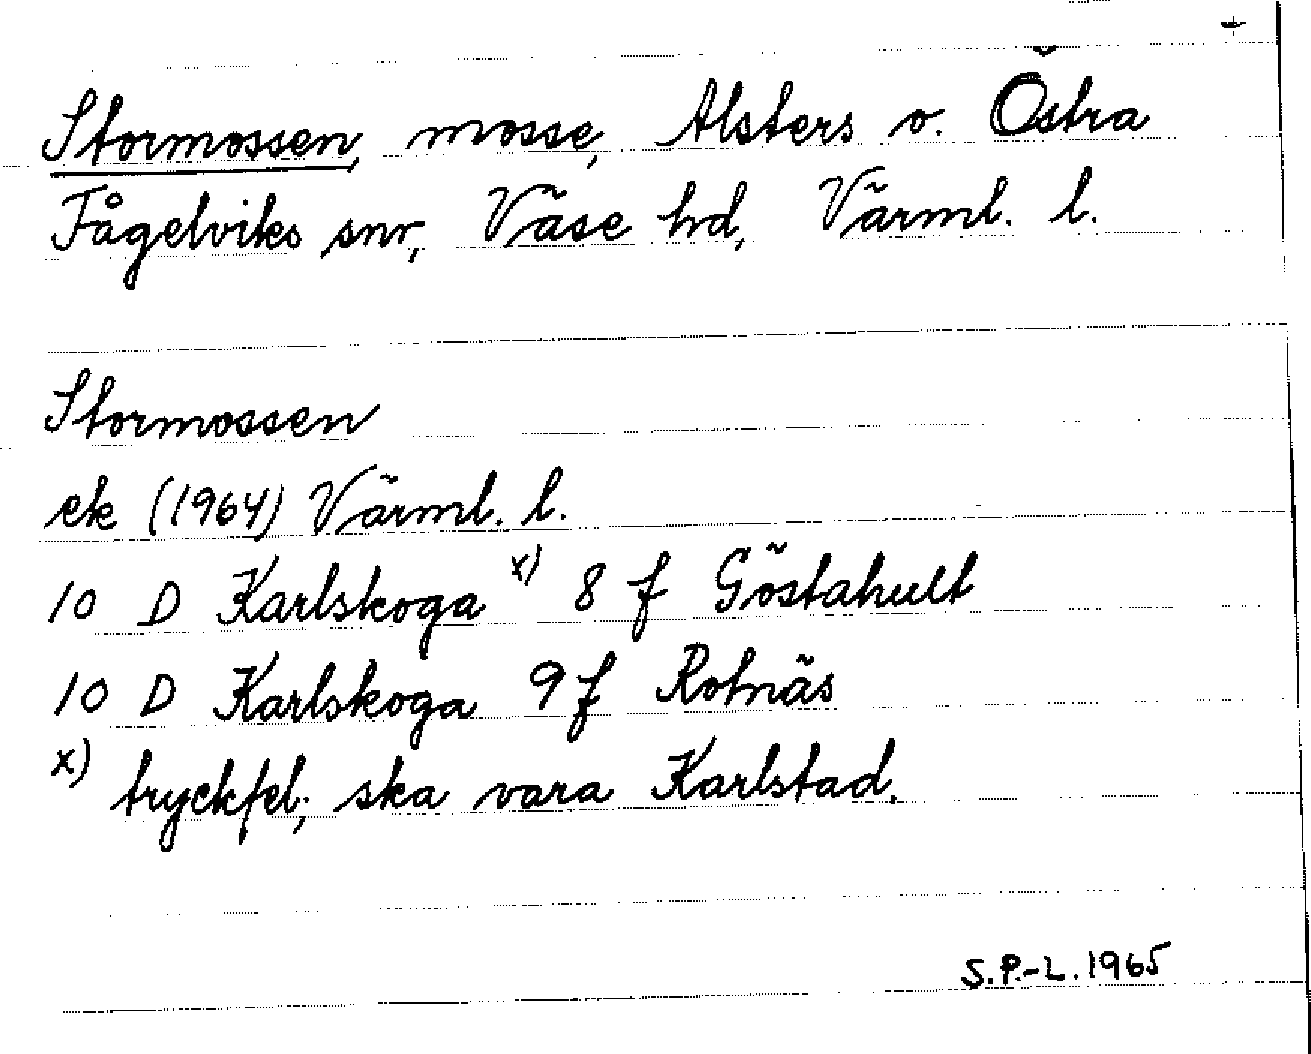 +
Stormossen, mosse, Alsters o. Östra
Fågelviks snr, Väse hd, Värml. l.
Stormossen
ek (1964) Värml. l.
10 D Karlskoga x) 8 f Göstahult
10 D Karlskoga 9 f Rotnäs
x) tryckfel; ska vara Karlstad.
S.P.-L. 1965